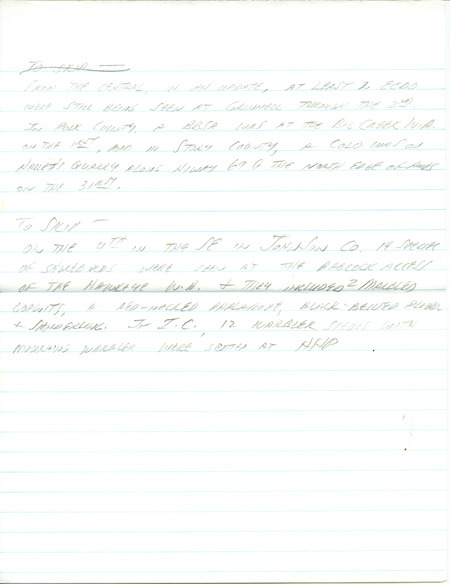 To Skip —
From the central, in an update, at least 2 ECDO
were still being seen at Grinnell through the 2nd
In Polk County, a BBSA was at the Big Creek W.A.
on the 1st, and in Story County, a COLO was on
Quarry along Hiway 69 @ the north edge of Ames
on the 31st.
To Skip —
On the 11th in the SE in Johnson Co. 14 species
of shorebirds were seen at the Babcock Access
of the Hawkeye W.A. & they included 2 Marbled
Godwits, a Red-necked Phalarope, Black-bellied Plover
& Sanderling. In I.C., 12 warbler species with
mourning warbler were spotted at HHP